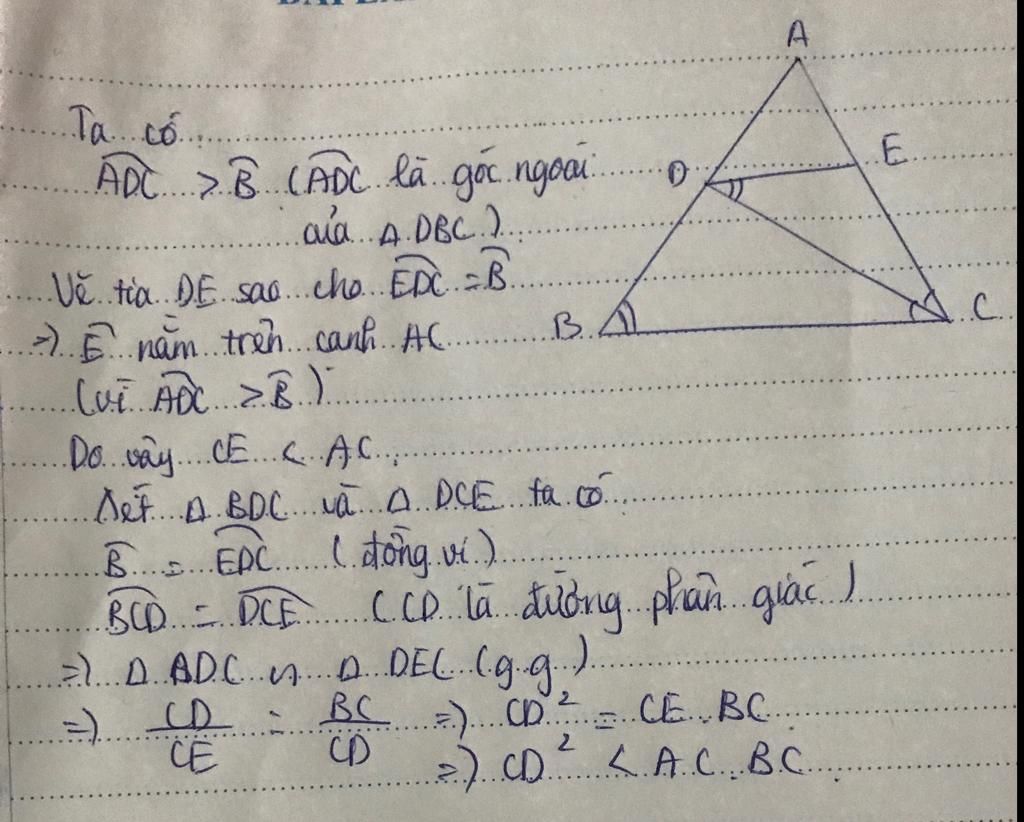 Ta có
ADC > B (ADC là góc ngoài
của Δ DBC)
Vẽ tia DE sao cho EDC = B
=) E nằm trên cạnh AC
(vì ADC > B)
Do vậy CE < AC.
Xét Δ BDC và Δ DCE ta có
B = EDC (đồng vị)
BCD = DCE (CD là đường phân giác)
=) Δ ADC ∽ Δ DEC (g.g)
=) CD/CE = BC/CD =) CD² = CE.BC
=) CD² < AC.BC
A
D
E
B
C